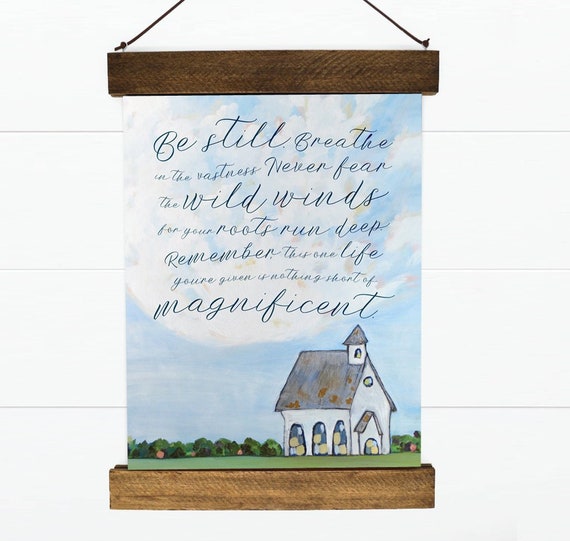 Be still. Breathe
in the vastness Never fear
the wild winds
for your roots run deep
Remember this one life
you're given is nothing short of
magnificent.